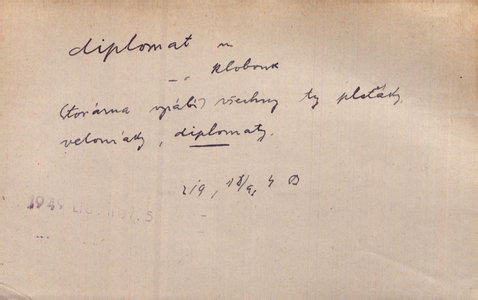 diplomat m
-„- klobouk
(továrna vyrábí) všechny ty plsťáky,
velouráky, diplomaty.
1949